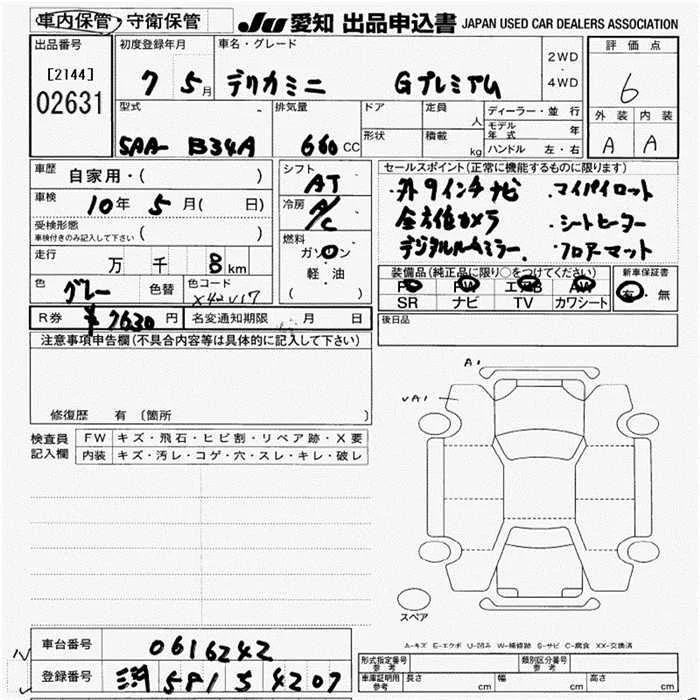 車内保管 守衛保管 JU 愛知 出品申込書 JAPAN USED CAR DEALERS ASSOCIATION
出品番号 初度登録年月 車名・グレード 評価点
[2144] 7 5月 デリカミニ Gプレミアム 2WD・4WD 6
02631 型式 排気量 ドア 定員 人 ディーラー・並行 外装 内装
形状 積載 kg モデル年式 年
5AA- B34A 660 CC ハンドル 左・右 A A
車歴 自家用・( ) シフト AT セールスポイント(正常に機能するものに限ります)
車検 10年 5月( 日) 冷房 A/C ・外9インチナビ ・マイパイロット
受検形態 車検付きのみ記入して下さい ( ) 全方位カメラ ・シートヒーター
燃料 ガソリン デジタルルームミラー ・フロアーマット
走行 万 千 8 km 軽油 ( )
装備品(純正品に限り○をつけてください) 新車保証書
色 グレー 色替 色コード X42V17 PS PW エアB AW 有・無
SR ナビ TV カワシート
R券 ¥7630円 名変通知期限 月 日 後日品
注意事項申告欄(不具合内容等は具体的に記入して下さい)
A1
修復歴 有 (箇所 )
検査員記入欄 FW キズ・飛石・ヒビ割・リペア跡・X要
内装 キズ・汚レ・コゲ・穴・スレ・キレ・破レ
スペア
A-キズ E-エクボ U-凹み W-補修跡 S-サビ C-腐食 XX-交換済
車台番号 0616242
登録番号 581 4207
形式指定番号 参考 類別区分番号 参考
車庫証明用 参考 長さ cm 幅 cm 高さ cm